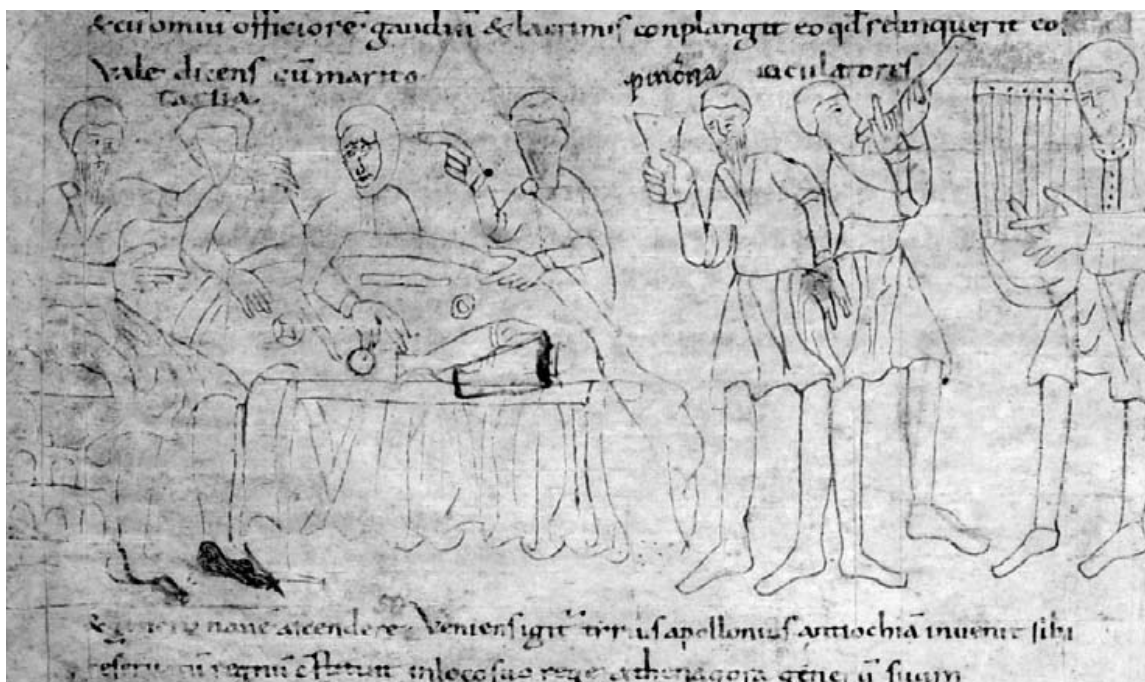 & cū omniū officiore gaudiū & lacrimis conplangit eo qd relinquerit eo
Vale dicens cū marito pinc̄na iaculatores
tarsia
& naue ascendere Veniens igit tirius apollonius antiochiā inuenit sibi
regnū c̄stituit in loco suo rege athenagora suum